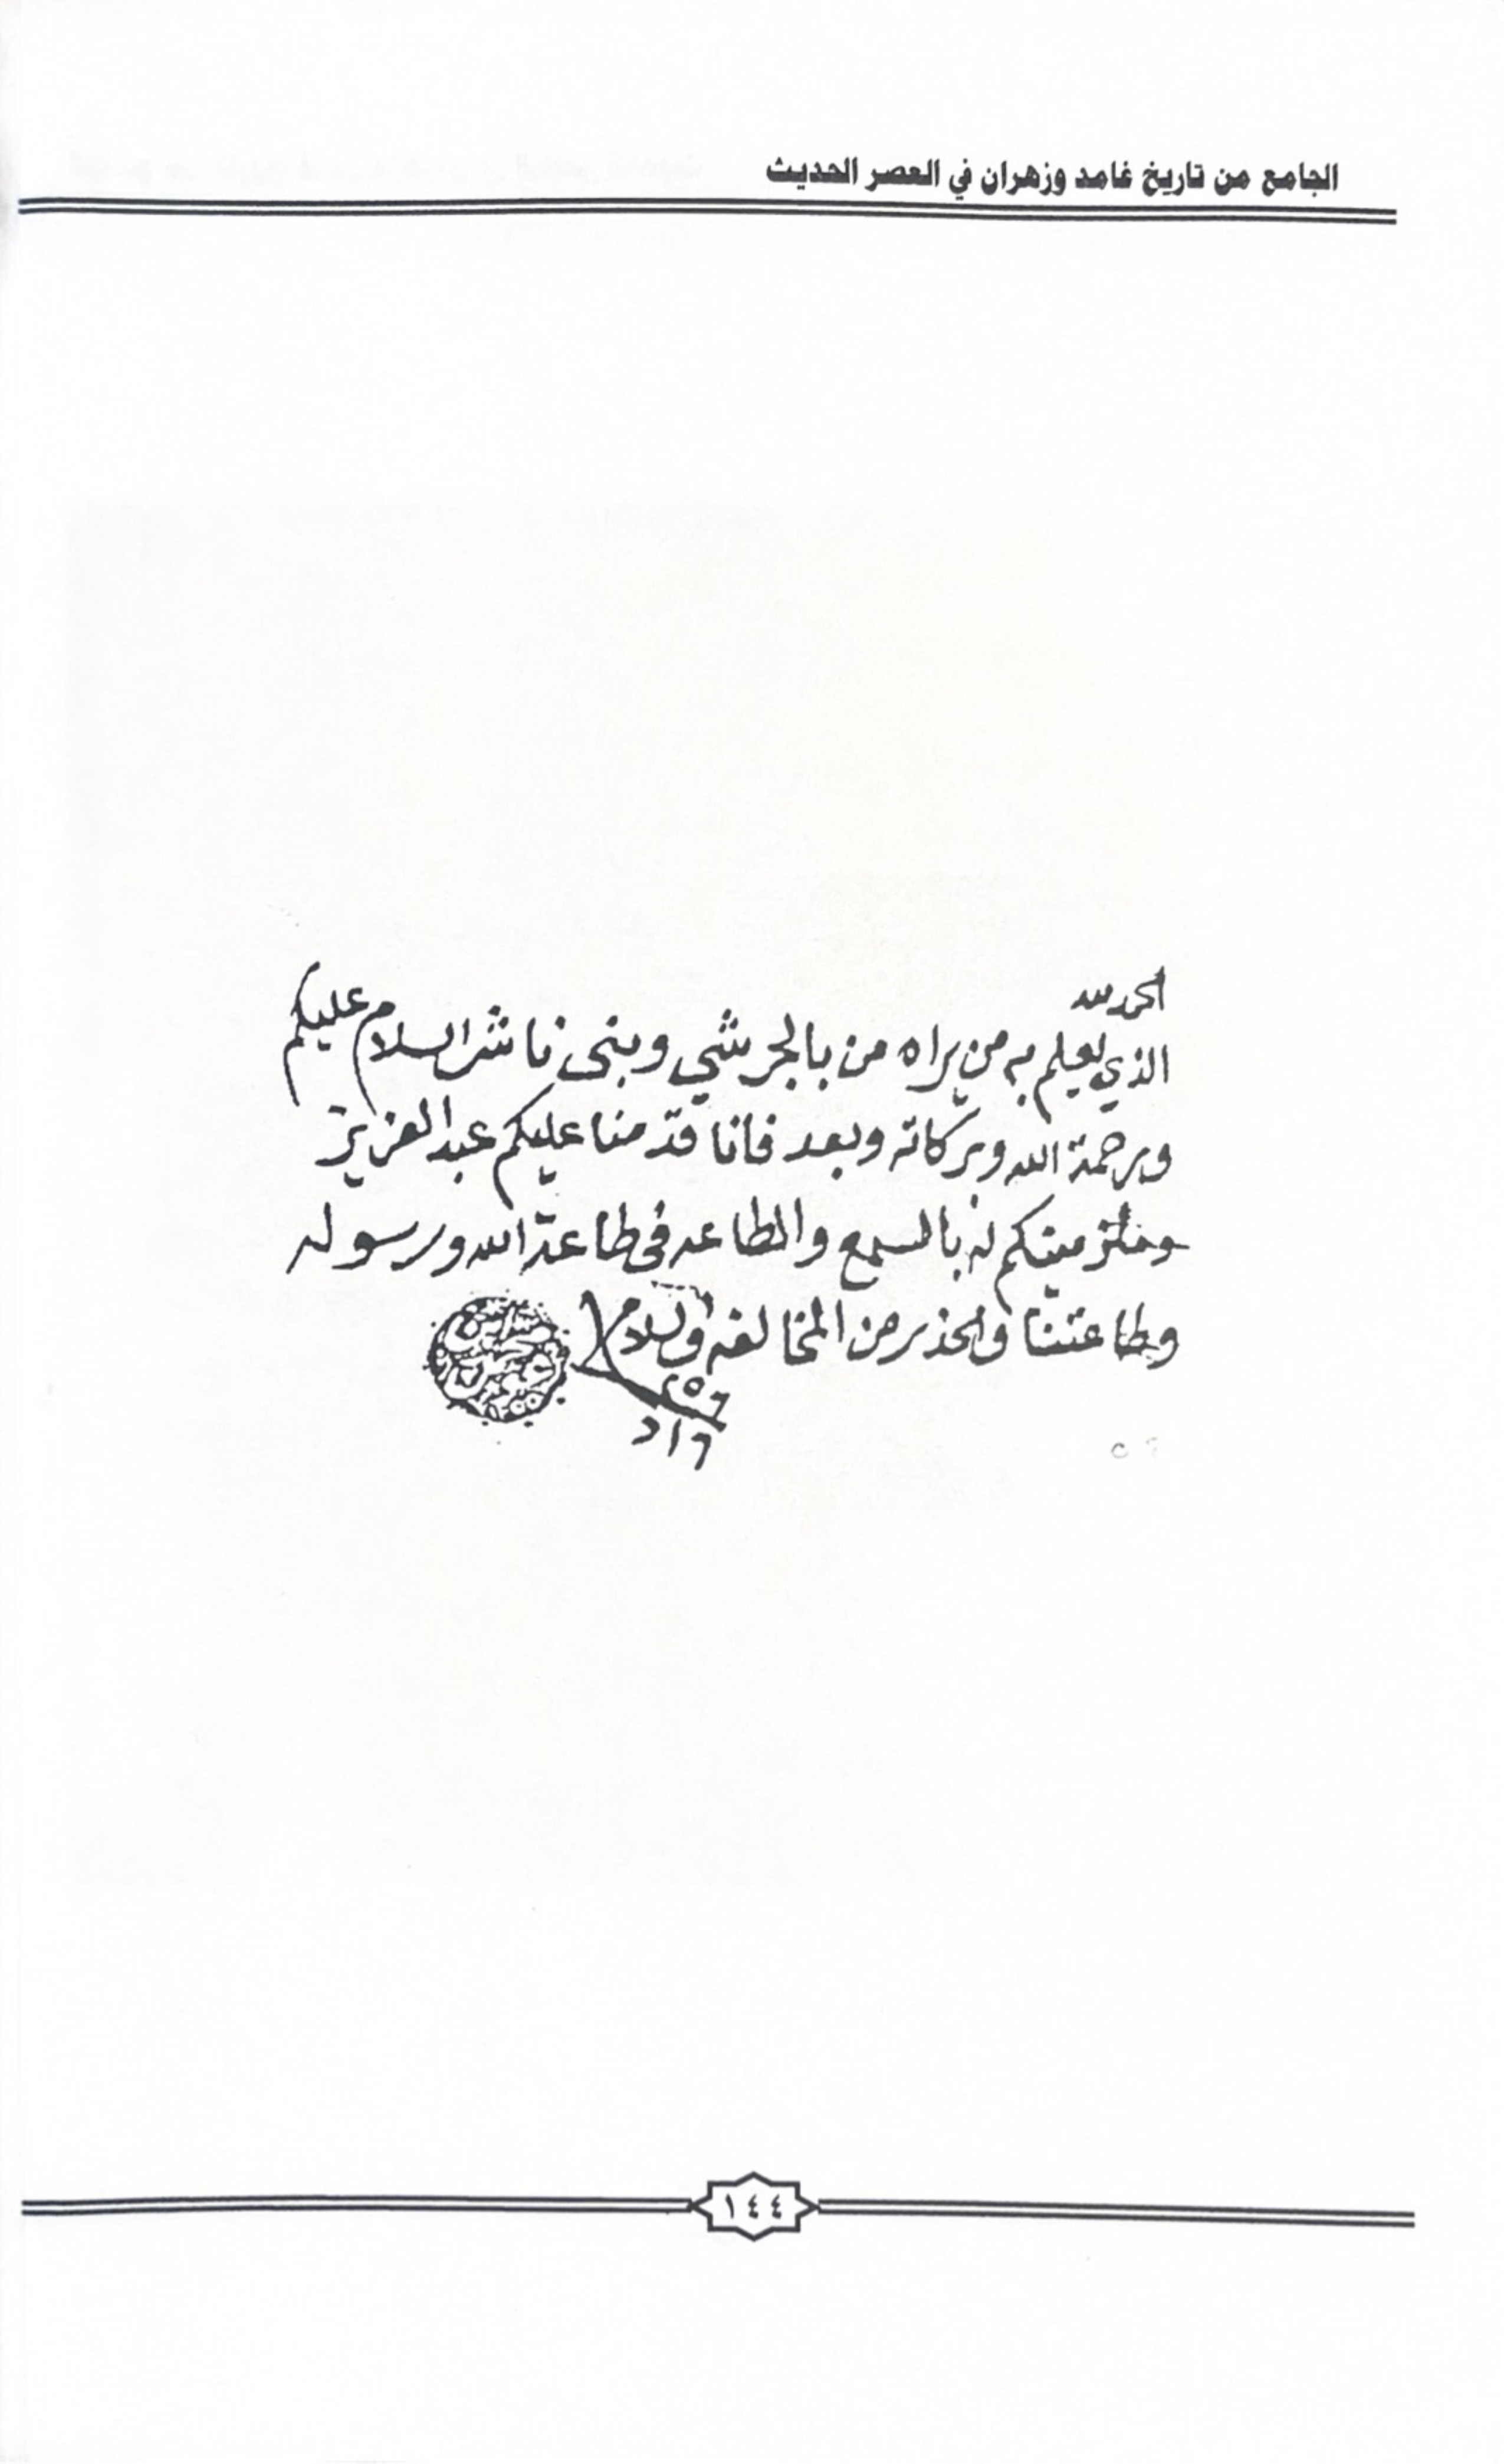 الجامع من تاريخ غامد وزهران في العصر الحديث
الحمد لله
الذي يعلم به من يراه من بالجرشي وبنى ناشر السلام عليكم
ورحمة الله وبركاته وبعد فانا قدمنا عليكم عبد العزيز
له بالسمع والطاعه فى طاعة الله ورسوله
وطاعتنا والحذر من المخالفه والسلام
١٤٤